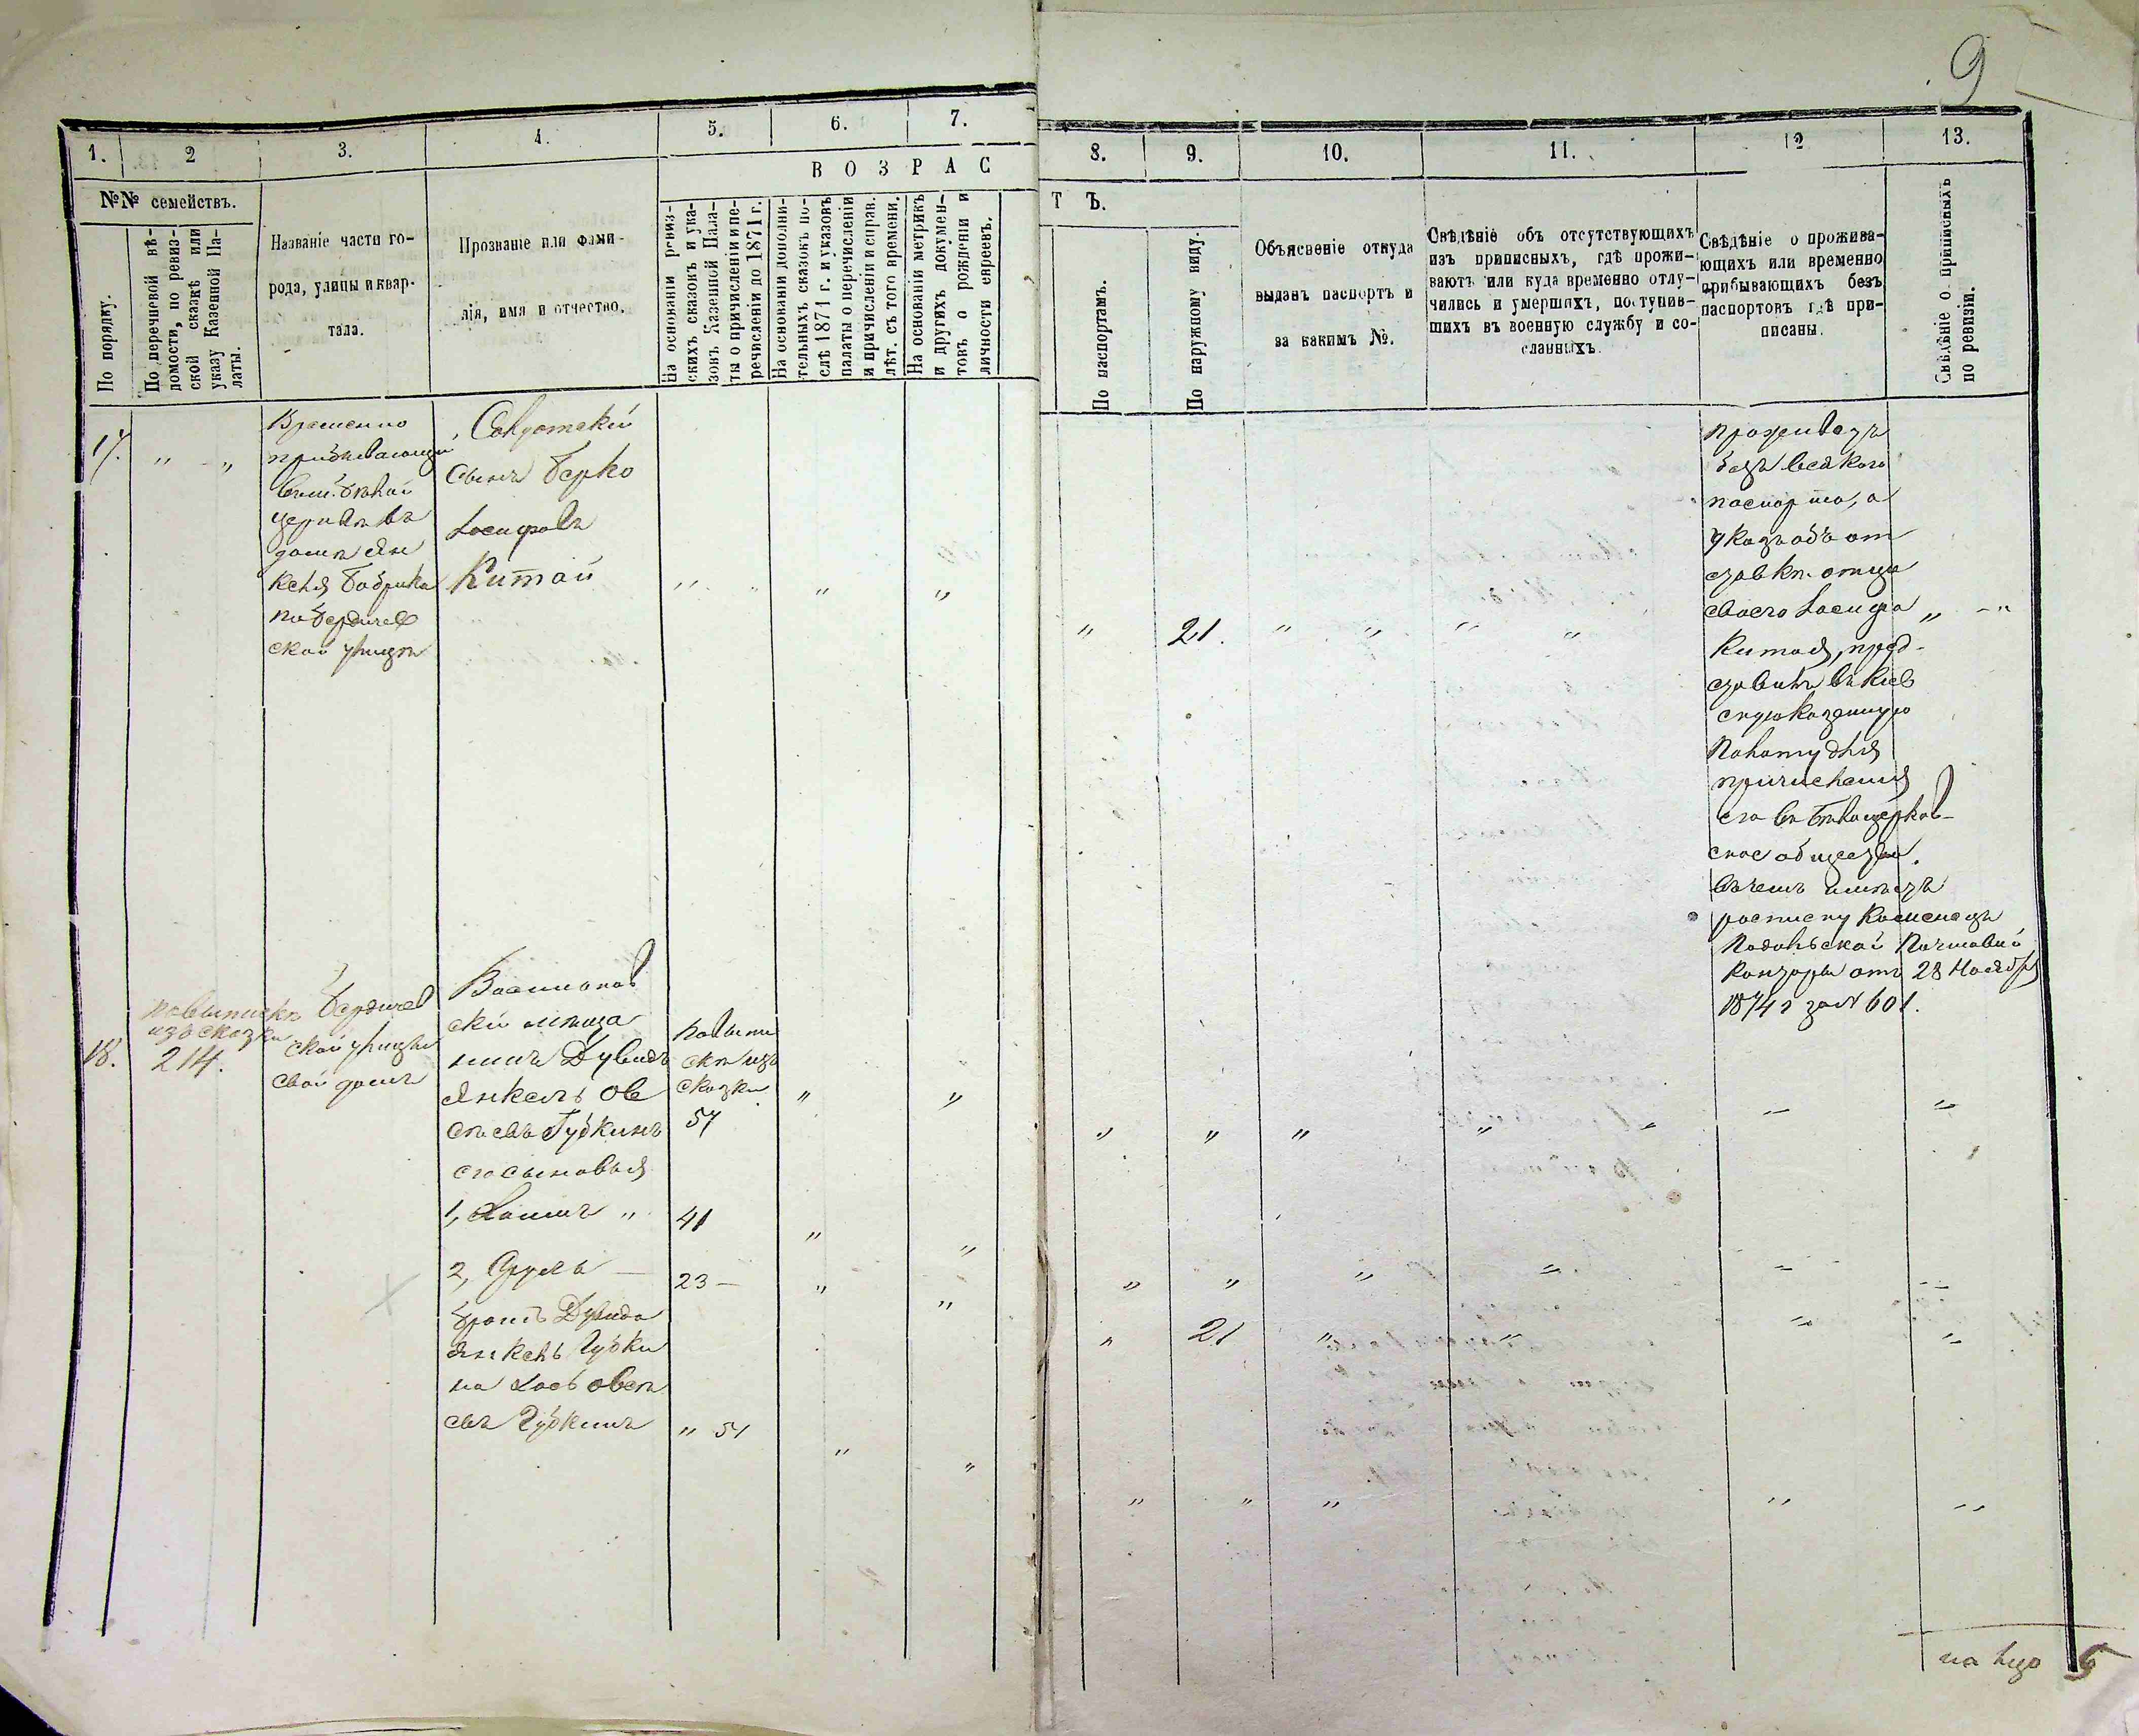 9
1. 2 3. 4. 5. 6. 7.
8. 9. 10. 11. 12 13.
В О З Р А С
Т Ъ.
№№ семействъ.
По порядку.
По перечневой вѣ-
домости, по ревиз-
ской сказкѣ или
указу Казенной Па-
латы.
Названіе части го-
рода, улицы и квар-
тала.
Прозваніе или фами-
лія, имя и отчество.
На основаніи ревиз-
скихъ сказокъ и ука-
зовъ Казенной Пала-
ты о причисленіи и пе-
речисленіи до 1871 г.
На основаніи дополни-
тельныхъ сказокъ по-
слѣ 1871 г. и указовъ
палаты о перечисленіи
и причисленіи и справ.
лѣт. съ того времени.
На основаніи метрикъ
и другихъ докумен-
товъ о рожденіи и
личности евреевъ.
По паспортамъ.
По наружному виду.
Объясненіе откуда
выданъ паспортъ и
за какимъ №.
Свѣдѣніе объ отсутствующихъ
изъ приписныхъ, гдѣ прожи-
ваютъ или куда временно отлу-
чились и умершихъ, поступив-
шихъ въ военную службу и со-
сланныхъ.
Свѣдѣніе о прожива-
ющихъ или временно
прибывающихъ безъ
паспортовъ гдѣ при-
писаны.
Свѣдѣніе о приписныхъ
по ревизіи.
17. " - "
Временно
Церквѣ въ
домѣ Ян
келя Бобрика
по Бердичев
ской улицѣ
Солдатскій
сынъ Берко
Іосифовъ
Китай
" " " "
" 21. " " " "
проживаетъ
безъ всякого
паспорта, а
указъ объ от
ставкѣ отца
своего Іосифа " - "
Китая, пред-
ставилъ въ Кіев
скую Казенную
Палату для
причисленія
его въ Бѣлоцерков-
ское общество.
въ чемъ имѣетъ
росписку Каменецъ
Подольской Почтовой
Конторы отъ 28 Ноября
1874 г за № 601.
18.
по выпискѣ
изъ сказки
214.
Бердичев
ской улицы
свой домъ
скій мѣща
нинъ Дувидъ
Янкель Ов
сѣевъ Губкинъ
его сыновья
1, Хаимъ "
2, Сруль —
братъ Дувида
Янкель Губки
на Іось Овсѣ
евъ Губкинъ
по выпи
скѣ изъ
сказки
57
41
23 —
" 51
" 21 " "
на лицо 5